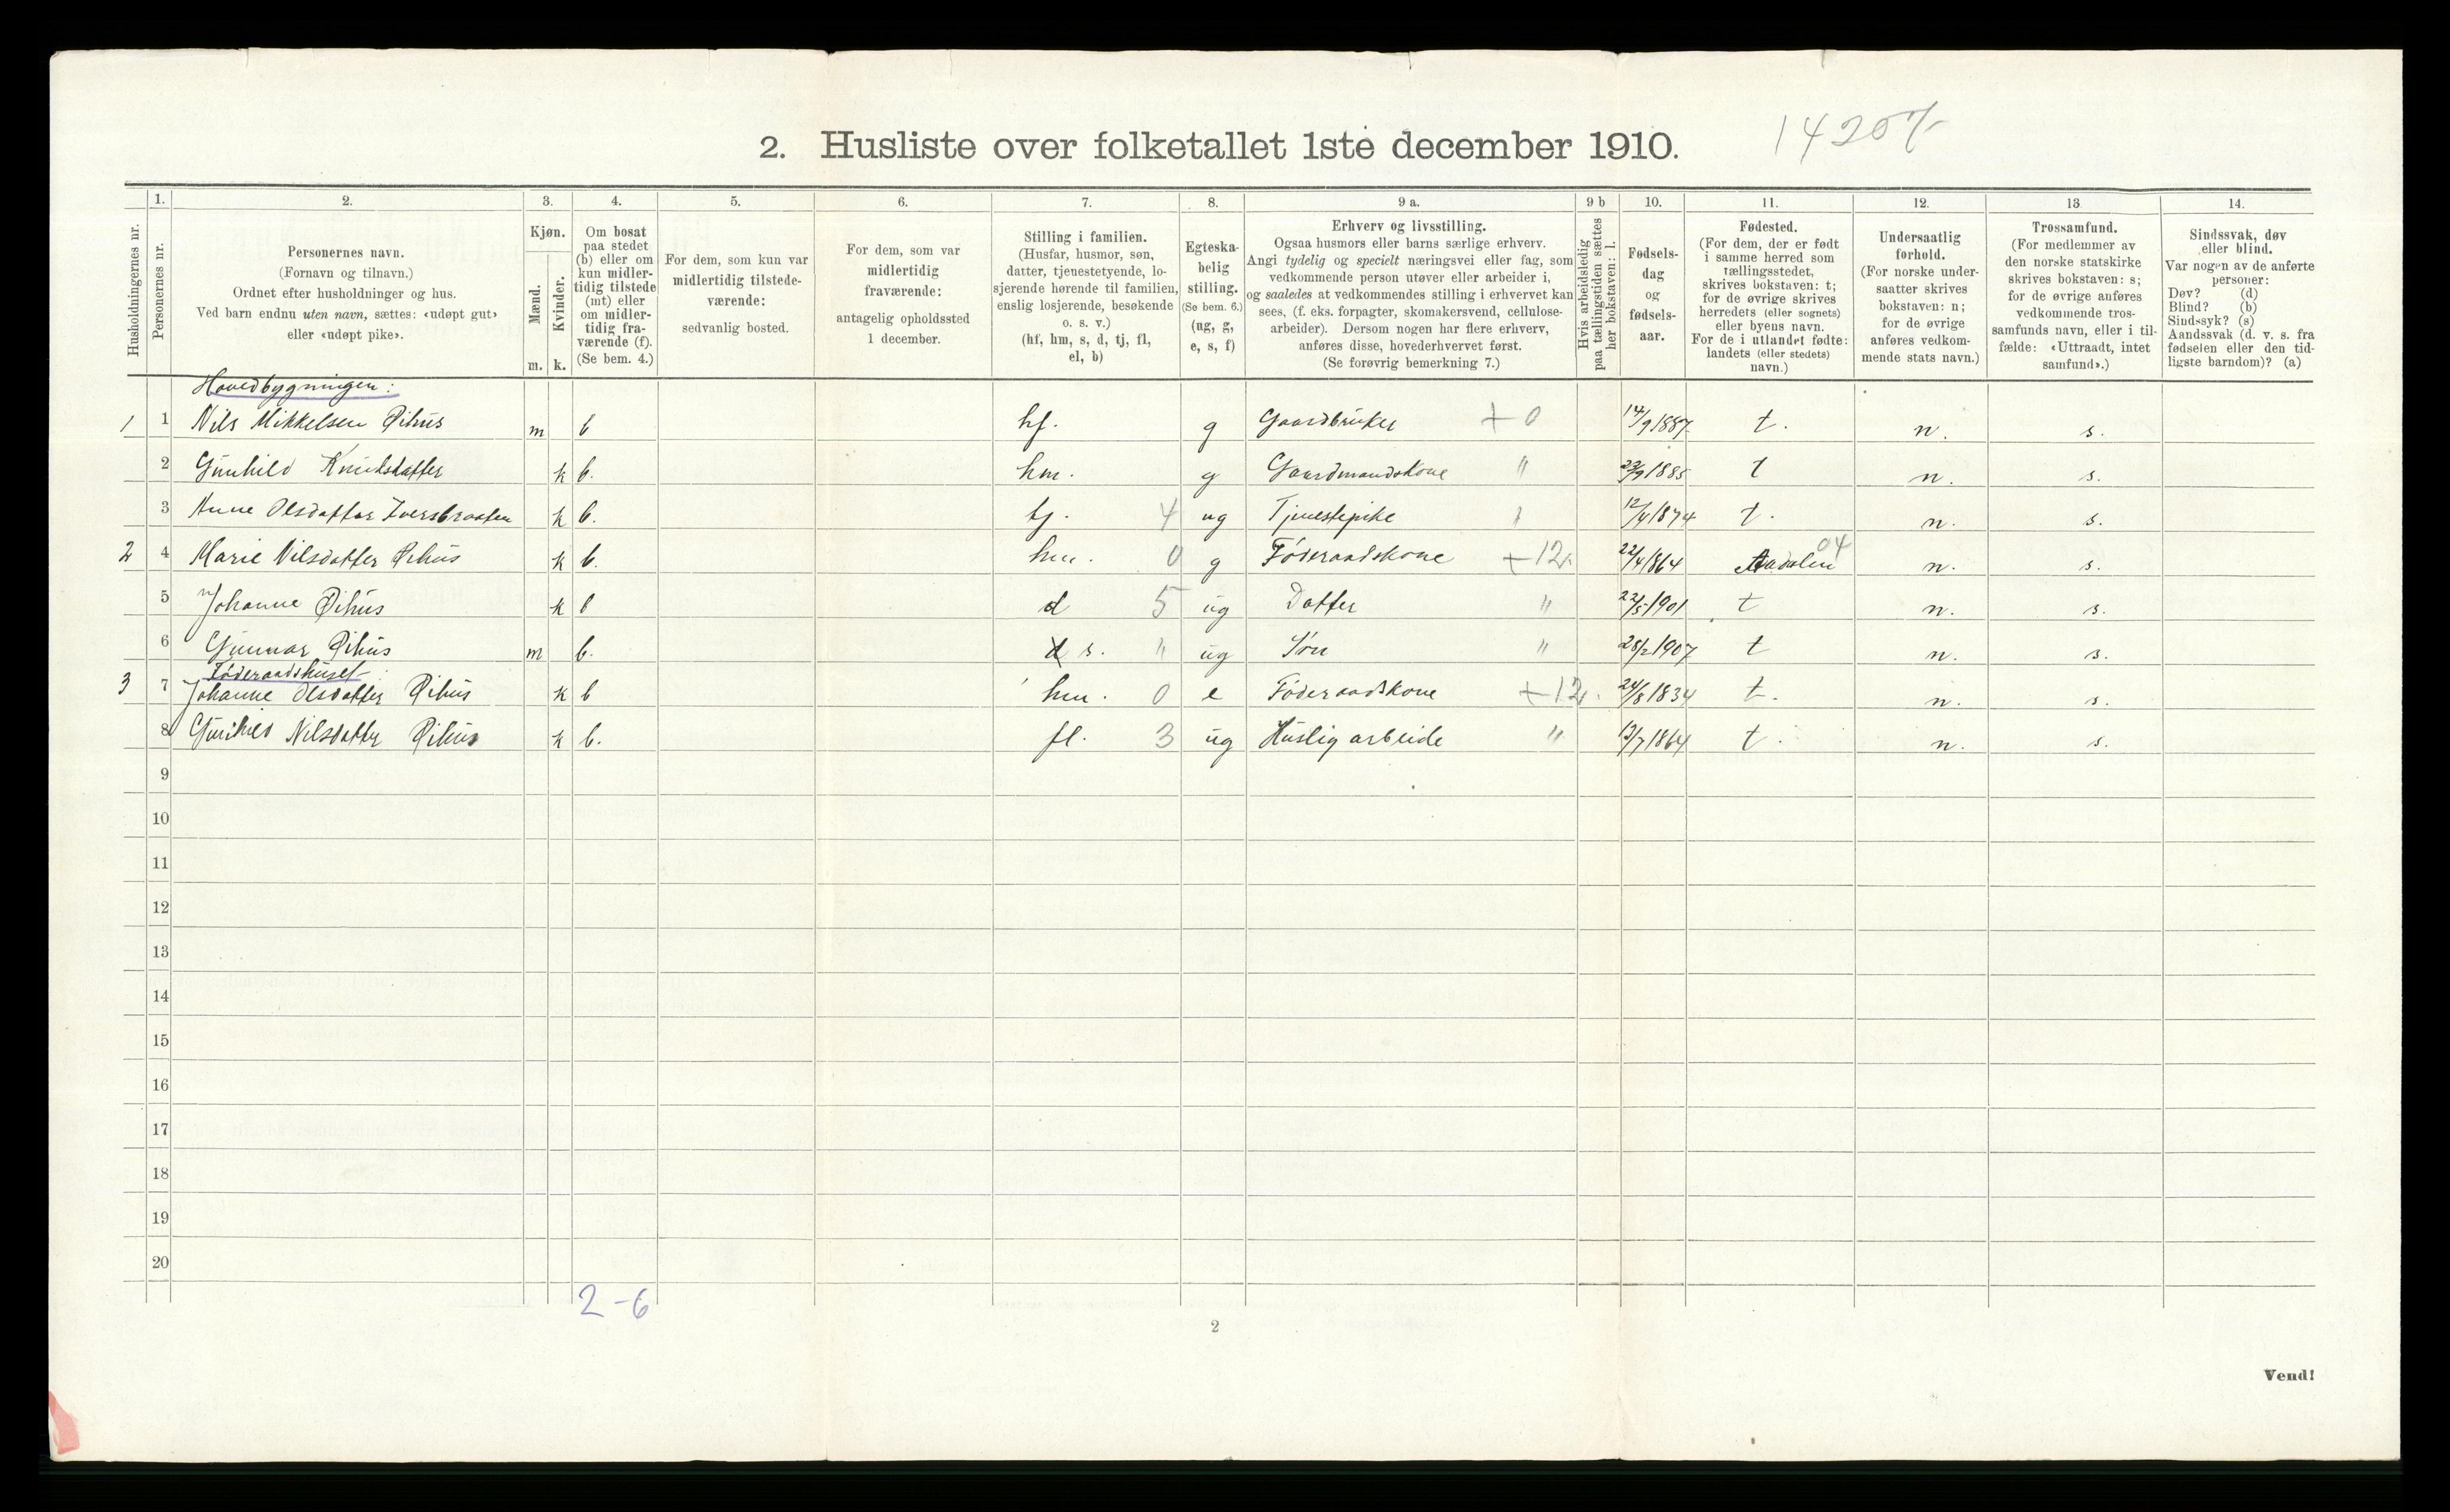 14207
2. Husliste over folketallet 1ste december 1910.
Husholdningernes nr.
1. Personernes nr.
2. Personernes navn. (Fornavn og tilnavn.) Ordnet efter husholdninger og hus. Ved barn endnu uten navn, sættes: «udøpt gut» eller «udøpt pike».
3. Kjøn. Mænd. m. Kvinder. k.
4. Om bosat paa stedet (b) eller om kun midlertidig tilstede (mt) eller om midlertidig fraværende (f). (Se bem. 4.)
5. For dem, som kun var midlertidig tilstedeværende: sedvanlig bosted.
6. For dem, som var midlertidig fraværende: antagelig opholdssted 1 december.
7. Stilling i familien. (Husfar, husmor, søn, datter, tjenestetyende, losjerende hørende til familien, enslig losjerende, besøkende o. s. v.) (hf, hm, s, d, tj, fl, el, b)
8. Egteskabelig stilling. (Se bem. 6.) (ug, g, e, s, f)
9 a. Erhverv og livsstilling. Ogsaa husmors eller barns særlige erhverv. Angi tydelig og specielt næringsvei eller fag, som vedkommende person utøver eller arbeider i, og saaledes at vedkommendes stilling i erhvervet kan sees, (f. eks. forpagter, skomakersvend, cellulosearbeider). Dersom nogen har flere erhverv, anføres disse, hovederhvervet først. (Se forøvrig bemerkning 7.)
9 b Hvis arbeidsledig paa tællingstiden sættes her bokstaven: l.
10. Fødselsdag og fødselsaar.
11. Fødested. (For dem, der er født i samme herred som tællingsstedet, skrives bokstaven: t; for de øvrige skrives herredets (eller sognets) eller byens navn. For de i utlandet fødte: landets (eller stedets) navn.)
12. Undersaatlig forhold. (For norske undersaatter skrives bokstaven: n; for de øvrige anføres vedkommende stats navn.)
13 Trossamfund. (For medlemmer av den norske statskirke skrives bokstaven: s; for de øvrige anføres vedkommende trossamfunds navn, eller i tilfælde: «Uttraadt, intet samfund».)
14. Sindssvak, døv eller blind. Var nogen av de anførte personer: Døv? (d) Blind? (b) Sindssyk? (s) Aandssvak (d. v. s. fra fødselen eller den tidligste barndom)? (a)
Hovedbygningen:
1 1 Nils Mikkelsen Pihus m b hf. g Gaardbruker + 0 14/9 1887 t. n. s.
2 Gunhild Knutsdatter k b. hm. g Gaardmandskone " 23/9 1885 t n. s.
3 Anne Olsdatter Iversbraaten k b. tj. 4 ug Tjenestepike 12/4 1874 t. n. s.
2 4 Marie Nilsdatter Pihus k b. hm. 0 g Føderaadskone + 12. 22/4 1864 Aadalen 04 n. s.
5 Johanne Pihus k b d 5 ug Datter " 22/5 1901 t n. s.
6 Gunnar Pihus m b. d s. " ug Søn " 28/2 1907 t n. s.
Føderaadshuset
3 7 Johanne Olsdatter Pihus k b hm. 0 e Føderaadskone + 12. 24/8 1834 t. n. s.
8 Gunhild Nilsdatter Pihus k b. fl. 3 ug Huslig arbeide " 13/7 1864 t. n. s.
9
10
11
12
13
14
15
16
17
18
19
20
2-6
2
Vend!